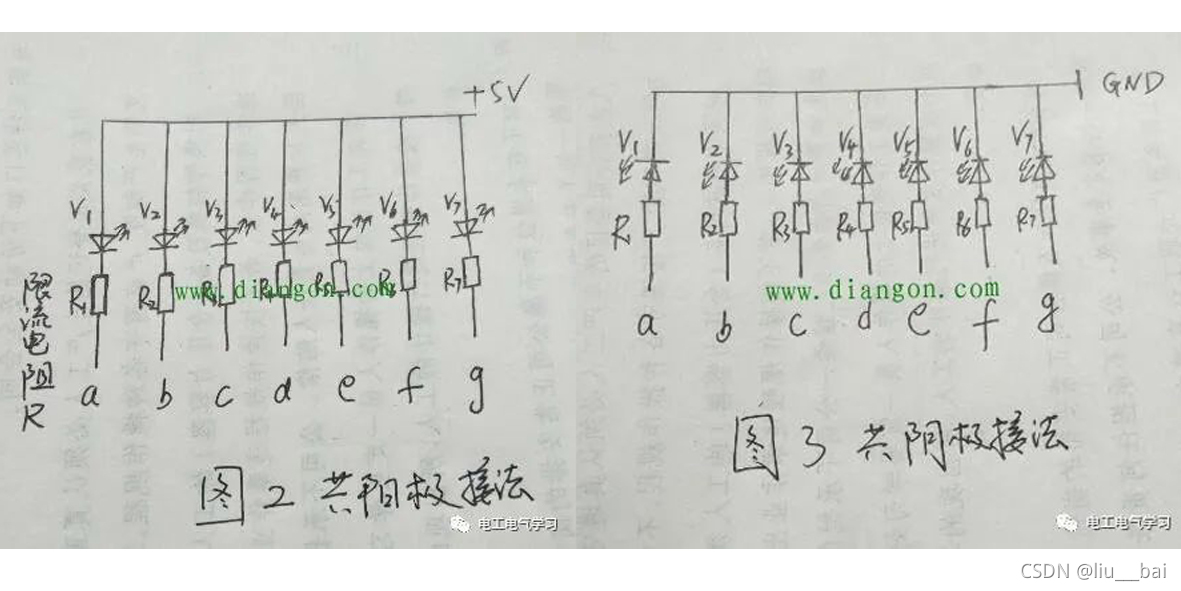 +5V
V1 V2 V3 V4 V5 V6 V7
限流电阻R
R1 R2 R3 R4 R5 R6 R7
www.diangon.com
a b c d e f g
图2 共阳极接法
电工电气学习
GND
V1 V2 V3 V4 V5 V6 V7
R R2 R3 R4 R5 R6 R7
www.diangon.com
a b c d e f g
图3 共阴极接法
电工电气学习
CSDN @liu__bai